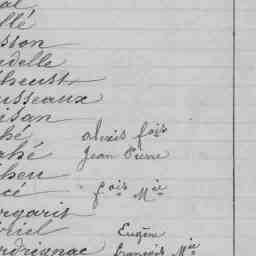 llé
sson
delle
heust
usseaux
isan
hé alexis fois
ahé Jean Pierre
heu
cé fois Mie
rgarit
riel Eugène
rdrignac françois Mie